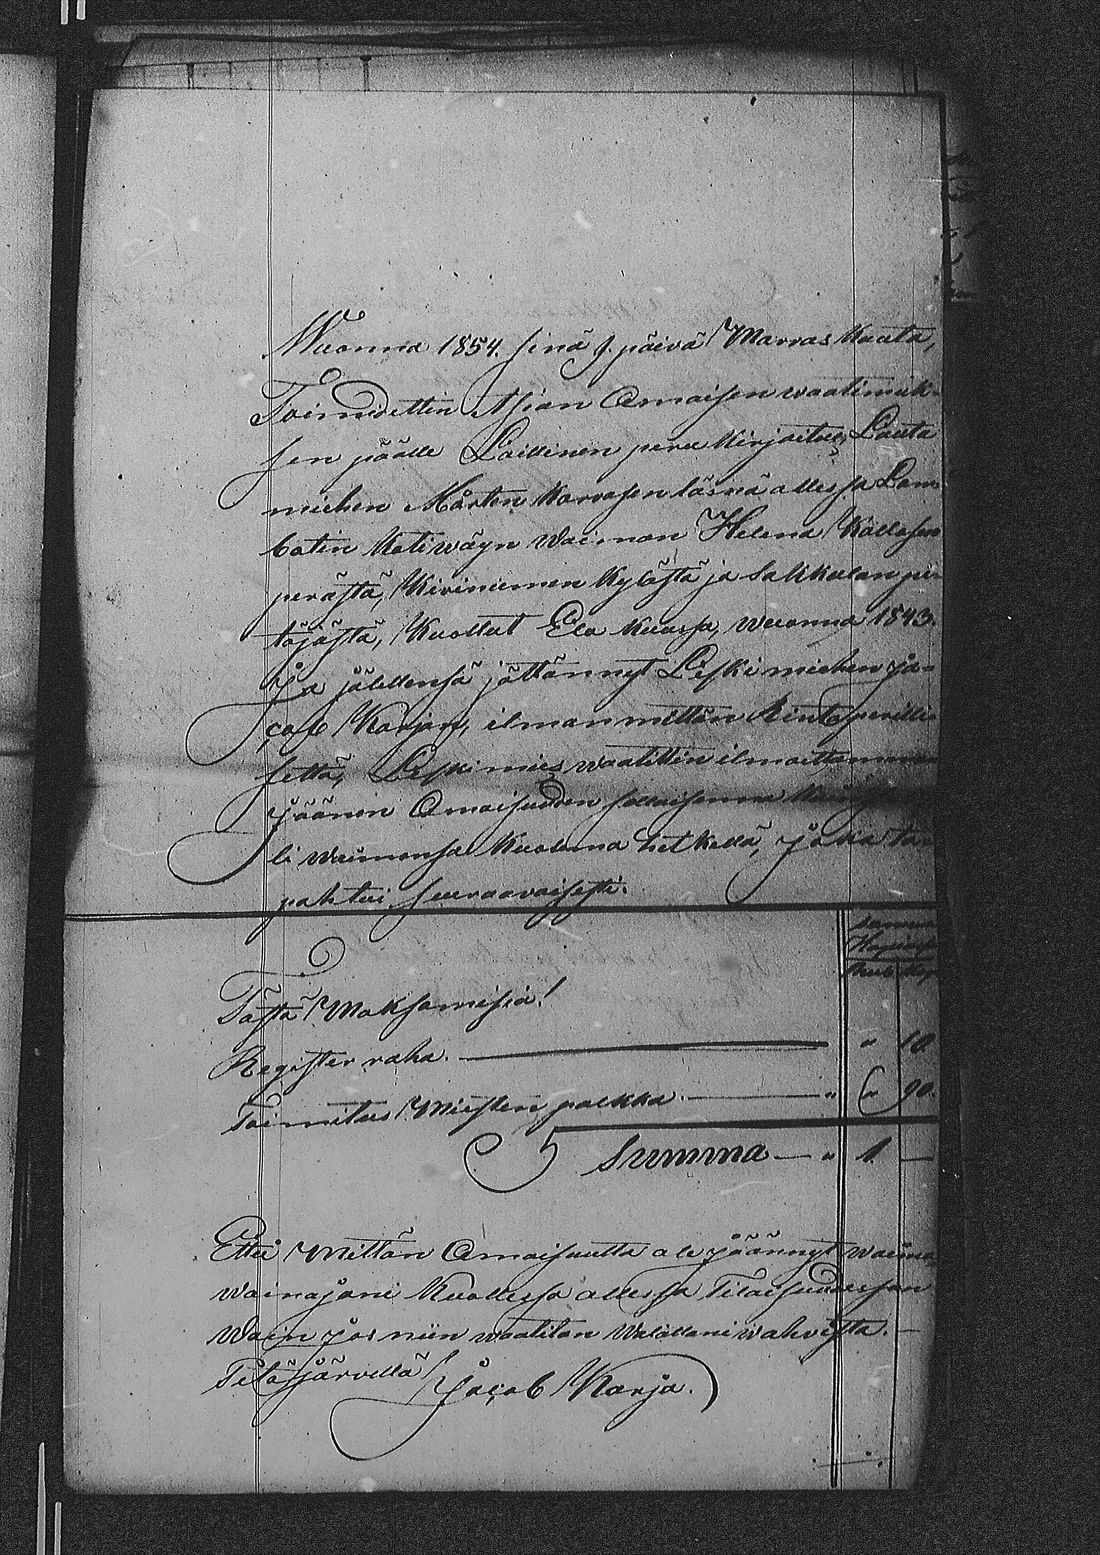 Wuonna 1854. sinä 9. päivä Marras kuuta,
Toimitettin Asian Omaisen waatimuk-
sen päälle Laillinen peru kirjoitus, Lauta
miehen Mårten Karvosen läsnä ollessa Lam
botin Koti wäyn Waimon Helena Kollosen
perästä, Kiviniemen Kylästä ja Sakkulan pi-
täjästä, Kuollut Elo kuussa, wuonna 1843.
Ja jälellensä jättännyt Leski miehen Ja-
cob Karjan, ilman mittän Rinta perilli-
settä, Leski mies waatittin ilmoittamaan
Jäänen Omaisuuden sellaisenna kuin se
li waimonsa Kuolema hetkellä, Joka ta-
pahtui seuraavaisesti.
Hopiassa
Rub Kop
Tästä Maksamisia!
Register raha. — " 10
Toimitus Miesten palkka. — " " 90.
Summa — " 1. —
Ettei Mittän Omaisuutta ole jäännyt waimo
wainajani Kuollessa ollessa Tilaisuudessan
Woin jos niin waatitan Walallani wahvista. —
Tilä järvellä Jacob Karja.